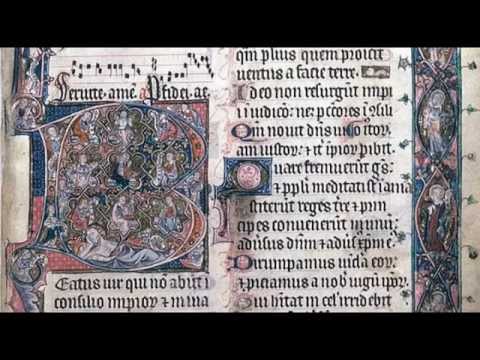 Seruite. amē. a fidei. ae
Beatus uir qui nō abiit ĩ
consilio impioꝝ et in uia
pluis quem proicit
uentus a facie terre.
Ideo non resurgūt impi
i ĩ iudicio: pctōres ĩ ɔsilio
Qm̄ nouit dn̄s
iustoꝝ: et ĩpioꝝ pibit
Quare fremuerūt gn̄s:
et ppli meditati st ĩania
Astiterūt reges tre et prin
cipes conuenerūt ĩ unū
aduersus dnm et xpm
Dirumpamus uicla eoꝝ:
et piciamus a nob iugū ipoꝝ.
Qui hitat in cel irridebit